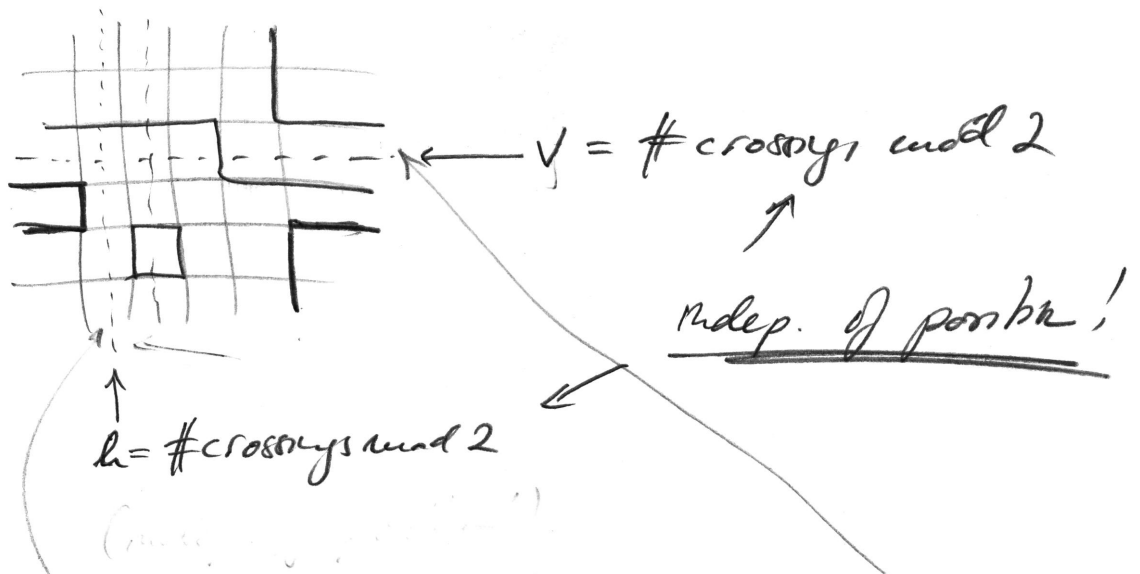 V = # crossings mod 2
indep. of position!
h = # crossings mod 2